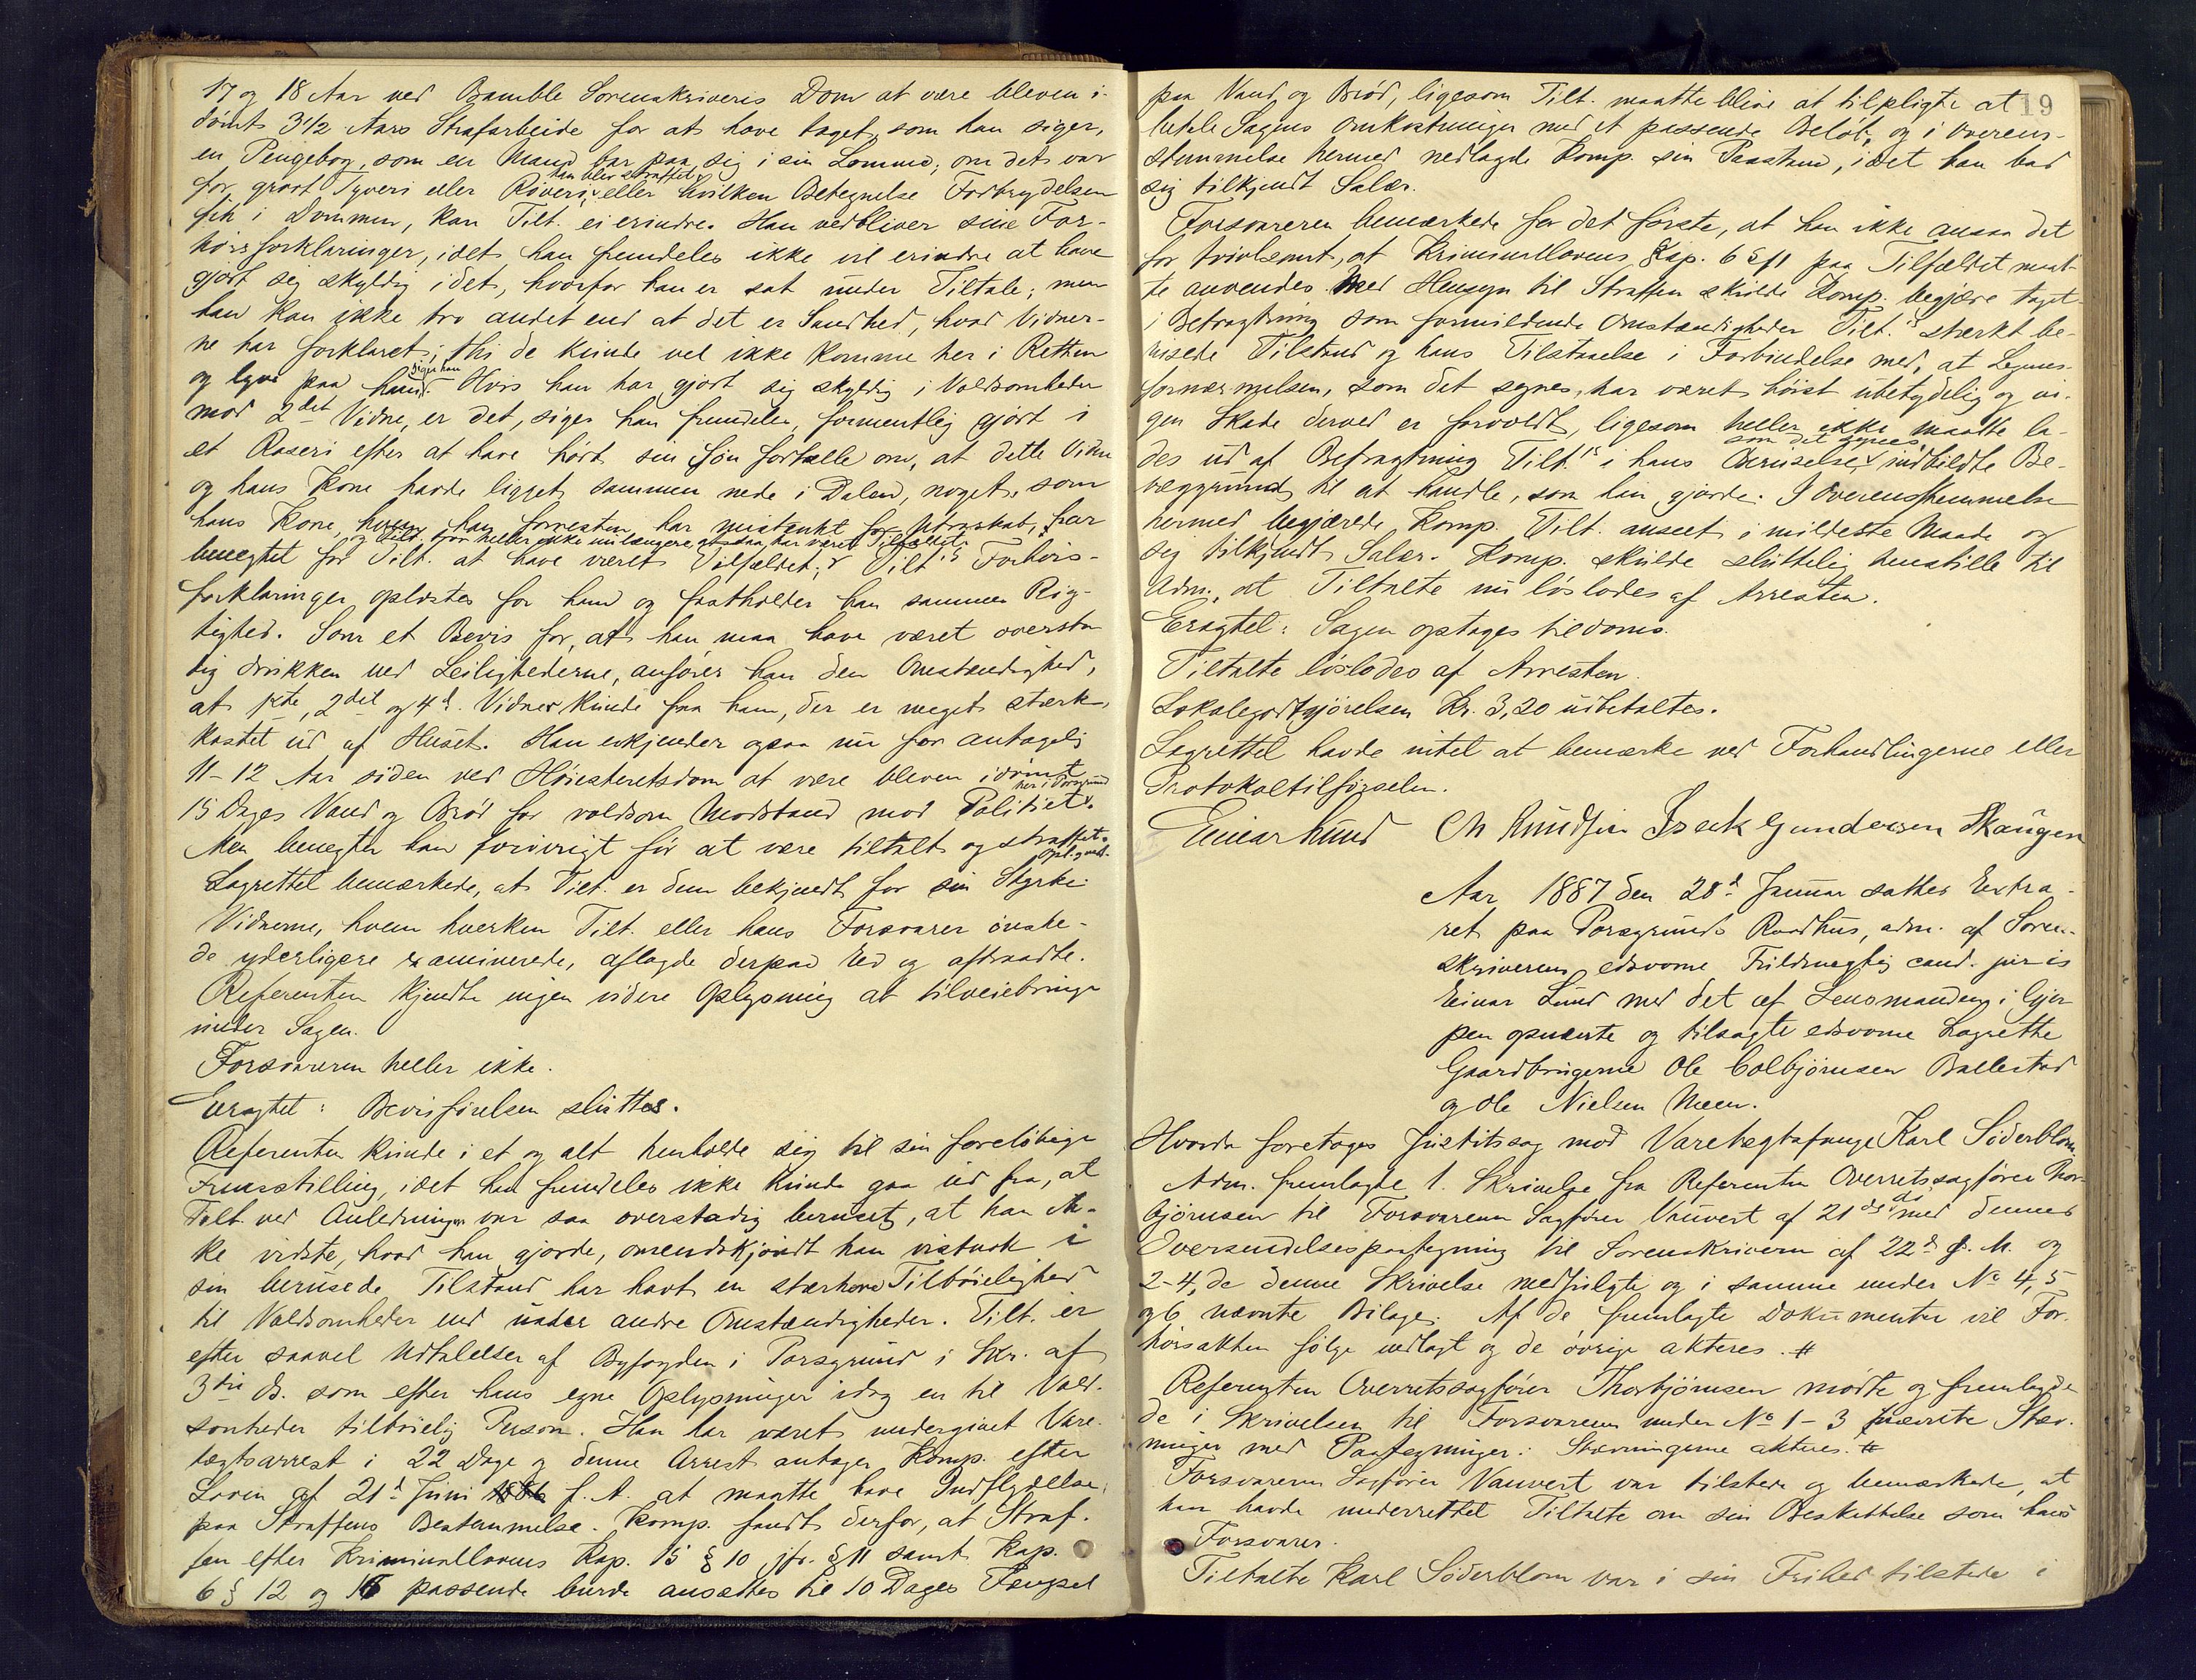 17 og 18 Aar ved Bamble Sorenskriveris Dom at være bleven i-
dømt 3 1/2 Aars Strafarbeide for at have taget, som han siger,
en Pengebog, som en Mand bar paa sig i sin Lomme; om det var
han blev straffet
for groft Tyveri eller Røveri, eller hvilken Betegnelse Forbrydelsen
fik i Dommen, kan Tilt. ei erindre. Han vedbliver sine For-
hørsforklaringer, idet han fremdeles ikke vil erindre at have
gjort sig skyldig i det, hvorfor han er sat under Tiltale; men
han kan ikke tro andet end at det er Sandhed, hvad Vidner-
ne har forklaret; thi de kunde vel ikke komme her i Retten
siger han
og lyve paa ham. Hvis han har gjort sig skyldig i Voldsomheder
mod 2det Vidne, er det, siger han fremdeles, formentlig gjort i
et Raseri efter at have hørt sin Søn fortælle om, at dette Vidne
og hans Kone havde ligget sammen nede i Dalen, noget, som
hans Kone, hvem han forresten har mistænkt for Utroskab, har
og Tilt. tror heller ikke nu længere at saa har været Tilfældet.
benegtet for Tilt. at have været Tilfældet; Tilt.s Forhørs-
forklaringer oplæstes for ham og fastholder han sammes Rig-
tighed. Som et Bevis for, at han maa have været oversta-
dig drukken ved Leilighederne, anfører han den Omstændighed,
at 1ste, 2det og 4d. Vidner kunde faa ham, der er meget stærk,
kastet ud af Huset. Han erkjender ogsaa nu for antagelig
11-12 Aar siden ved Høiesteretsdom at være bleven idømt
her i Porsgrund
15 Dages Vand og Brød for voldsom Modstand mod Politiet.
Men benegter han forøvrigt før at være tiltalt og straffet.
Opl. g. ved.
Lagrettet bemærkede, at Tilt. er dem bekjendt for sin Styrke.
Vidnerne, hvem hverken Tilt. eller hans Forsvarer ønske-
de yderligere examinerede, aflagde derpaa Ed og aftraadte.
Referenten kjendte ingen videre Oplysning at tilveiebringe
under Sagen.
Forsvareren heller ikke.
Eragtet: Bevisførelsen sluttes.
Referenten kunde i et og alt henholde sig til sin foreløbige
Fremstilling, idet han fremdeles ikke kunde gaa ud fra, at
Tilt. ved Anledningen var saa overstadig beruset, at han ik-
ke vidste, hvad han gjorde, omendskjøndt han vistnok i
sin berusede Tilstand har havt en stærkere Tilbøielighed
til Voldsomheder end under andre Omstændigheder. Tilt. er
efter saavel Udtalelser af Byfogden i Porsgrund i Skr. af
3die ds. som efter hans egne Oplysninger idag en til Vold-
somheder tilbøielig Person. Han har været undergivet Vare-
tægtsarrest i 22 Dage og denne Arrest antager Komp. efter
Loven af 21d Juni f. A. at maatte have Indflydelse
paa Straffens Bestemmelse. Komp. fandt derfor, at Straf-
fen efter Kriminallovens Kap. 15 § 10 jfr. § 11 samt Kap.
6 § 12 og 16 passende burde ansættes til 10 Dages Fængsel
19
paa Vand og Brød, ligesom Tilt. maatte blive at tilpligte at
betale Sagens Omkostninger med et passende Beløb, og i Overens-
stemmelse hermed nedlagde Komp. sin Paastand, idet han bad
sig tilkjendt Salær.
Forsvareren bemærkede for det første, at han ikke ansaa det
for tvivlsomt, at Kriminallovens Kap. 6 § 11 paa Tilfældet maat-
te anvendes. Med Hensyn til Straffen skulde Komp. begjære taget
i Betragtning som formildende Omstændigheder Tilt.s stærkt be-
rusede Tilstand og hans Tilstaaelse i Forbindelse med, at Legems-
fornærmelsen, som det synes, har været høist ubetydelig og in-
gen Skade derved er forvoldt, ligesom heller ikke maatte la-
som det synes
des ud af Betragtning Tilt.s i hans Beruselse indbildte Be-
væggrund til at handle, som han gjorde. I Overensstemmelse
hermed begjærede Komp. Tilt. anseet i mildeste Maade og
sig tilkjendt Salær. Komp. skulde sluttelig henstille til
Adm., at Tiltalte nu løslades af Arresten.
Eragtet: Sagen optages til doms.
Tiltalte løslodes af Arresten.
Lokalegodtgjørelsen Kr. 3,20 udbetaltes.
Lagrettet havde intet at bemærke ved Forhandlingerne eller
Protokoltilførselen.
Einar Lund Ch Knudsen Isack Gundersen Skaugen
Aar 1887 den 28d Januar sattes Extra-
ret paa Porsgrunds Raadhus, adm. af Soren-
skriverens edsvorne Fuldmægtig cand. juris
Einar Lund med det af Lensmanden i Gjer-
pen opnævnte og tilsagte edsvorne Lagrette
Gaardbrugerne Ole Colbjørnsen Ballestad
og Ole Nielsen Meen.
Hvorda foretoges Justitssag mod Varetægtsfange Karl Söderblom.
Adm. fremlagde 1. Skrivelse fra Referenten Overretssagfører Thor-
bjørnsen til Forsvareren Sagfører Vauvert af 21de ds med dennes
Oversendelsespaategning til Sorenskriveren af 22d d. M. og
2-4, de denne Skrivelse medfulgte og i samme under No 4, 5
og 6 nævnte Bilage. Af de fremlagte Dokumenter vil For-
hørsakten følge vedlagt og de øvrige akteres. #
Referenten Overretssagfører Thorbjørnsen mødte og fremlag-
de i Skrivelsen til Forsvareren under No 1-3 nævnte Stæv-
ninger med Paategninger: Stævningerne akteres. #
Forsvareren Sagfører Vauvert var tilstede og bemærkede, at
han havde underrettet Tiltalte om sin Beskikkelse som hans
Forsvarer.
Tiltalte Karl Söderblom var i sin Frihed tilstede i